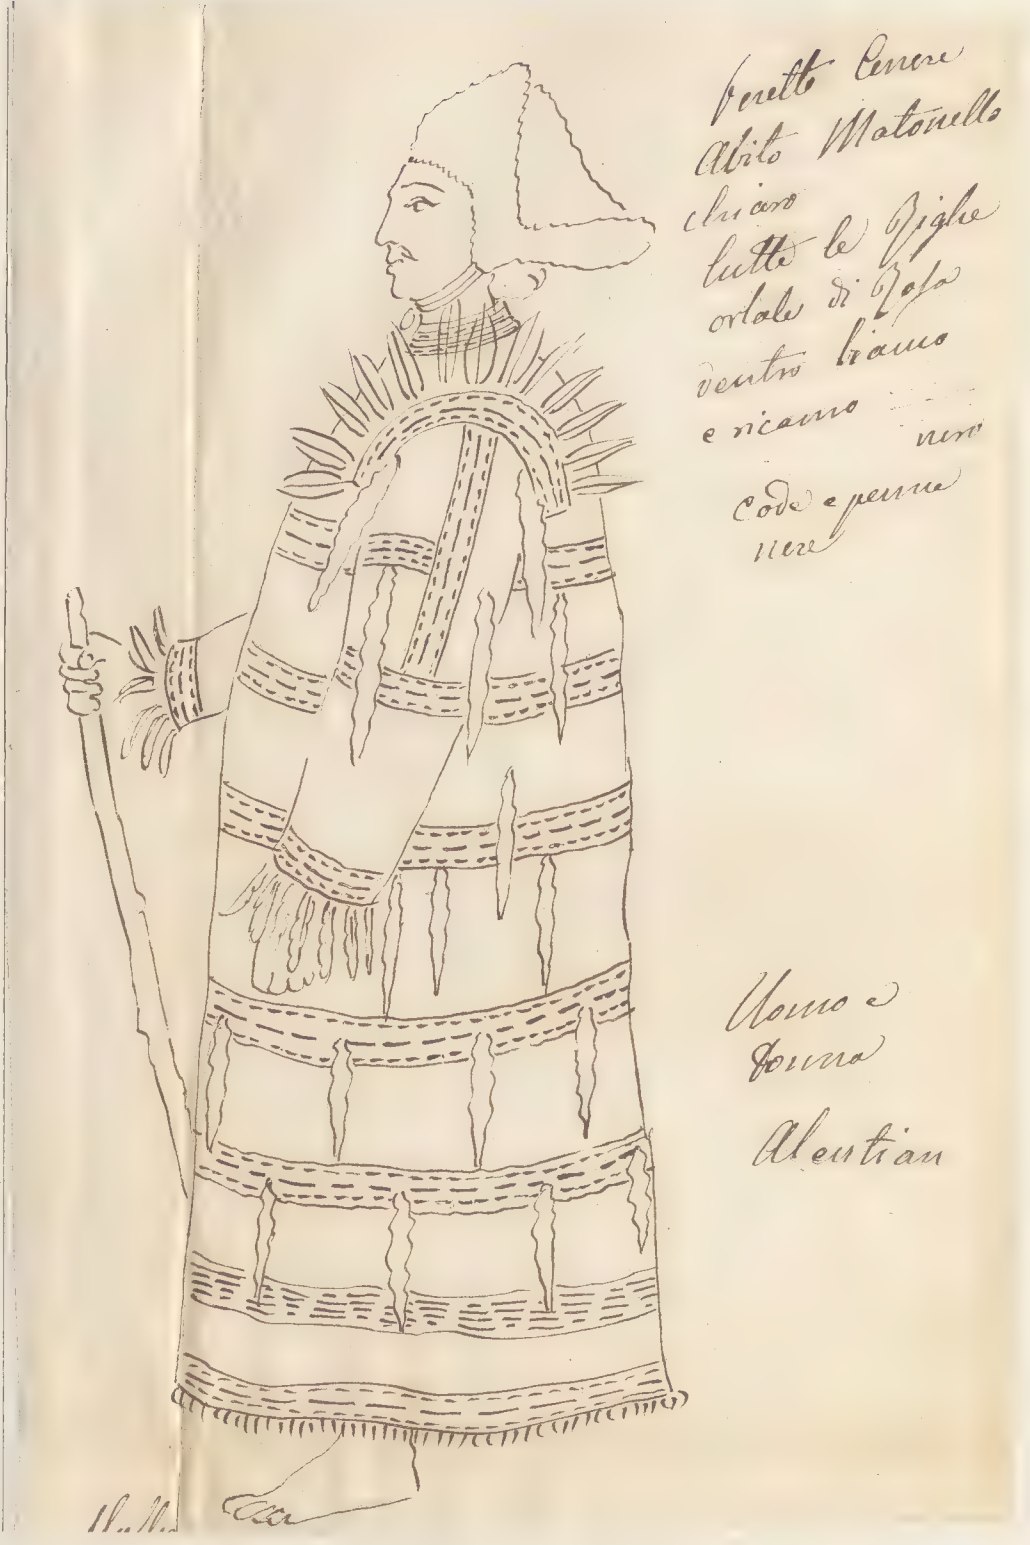 beretto Cenere
Abito Matonello
chiaro
tutte le Righe
orlate di Rosa
dentro bianco
e ricamo
nero
code e penne
nere
Uomo e
donna
Aleutian